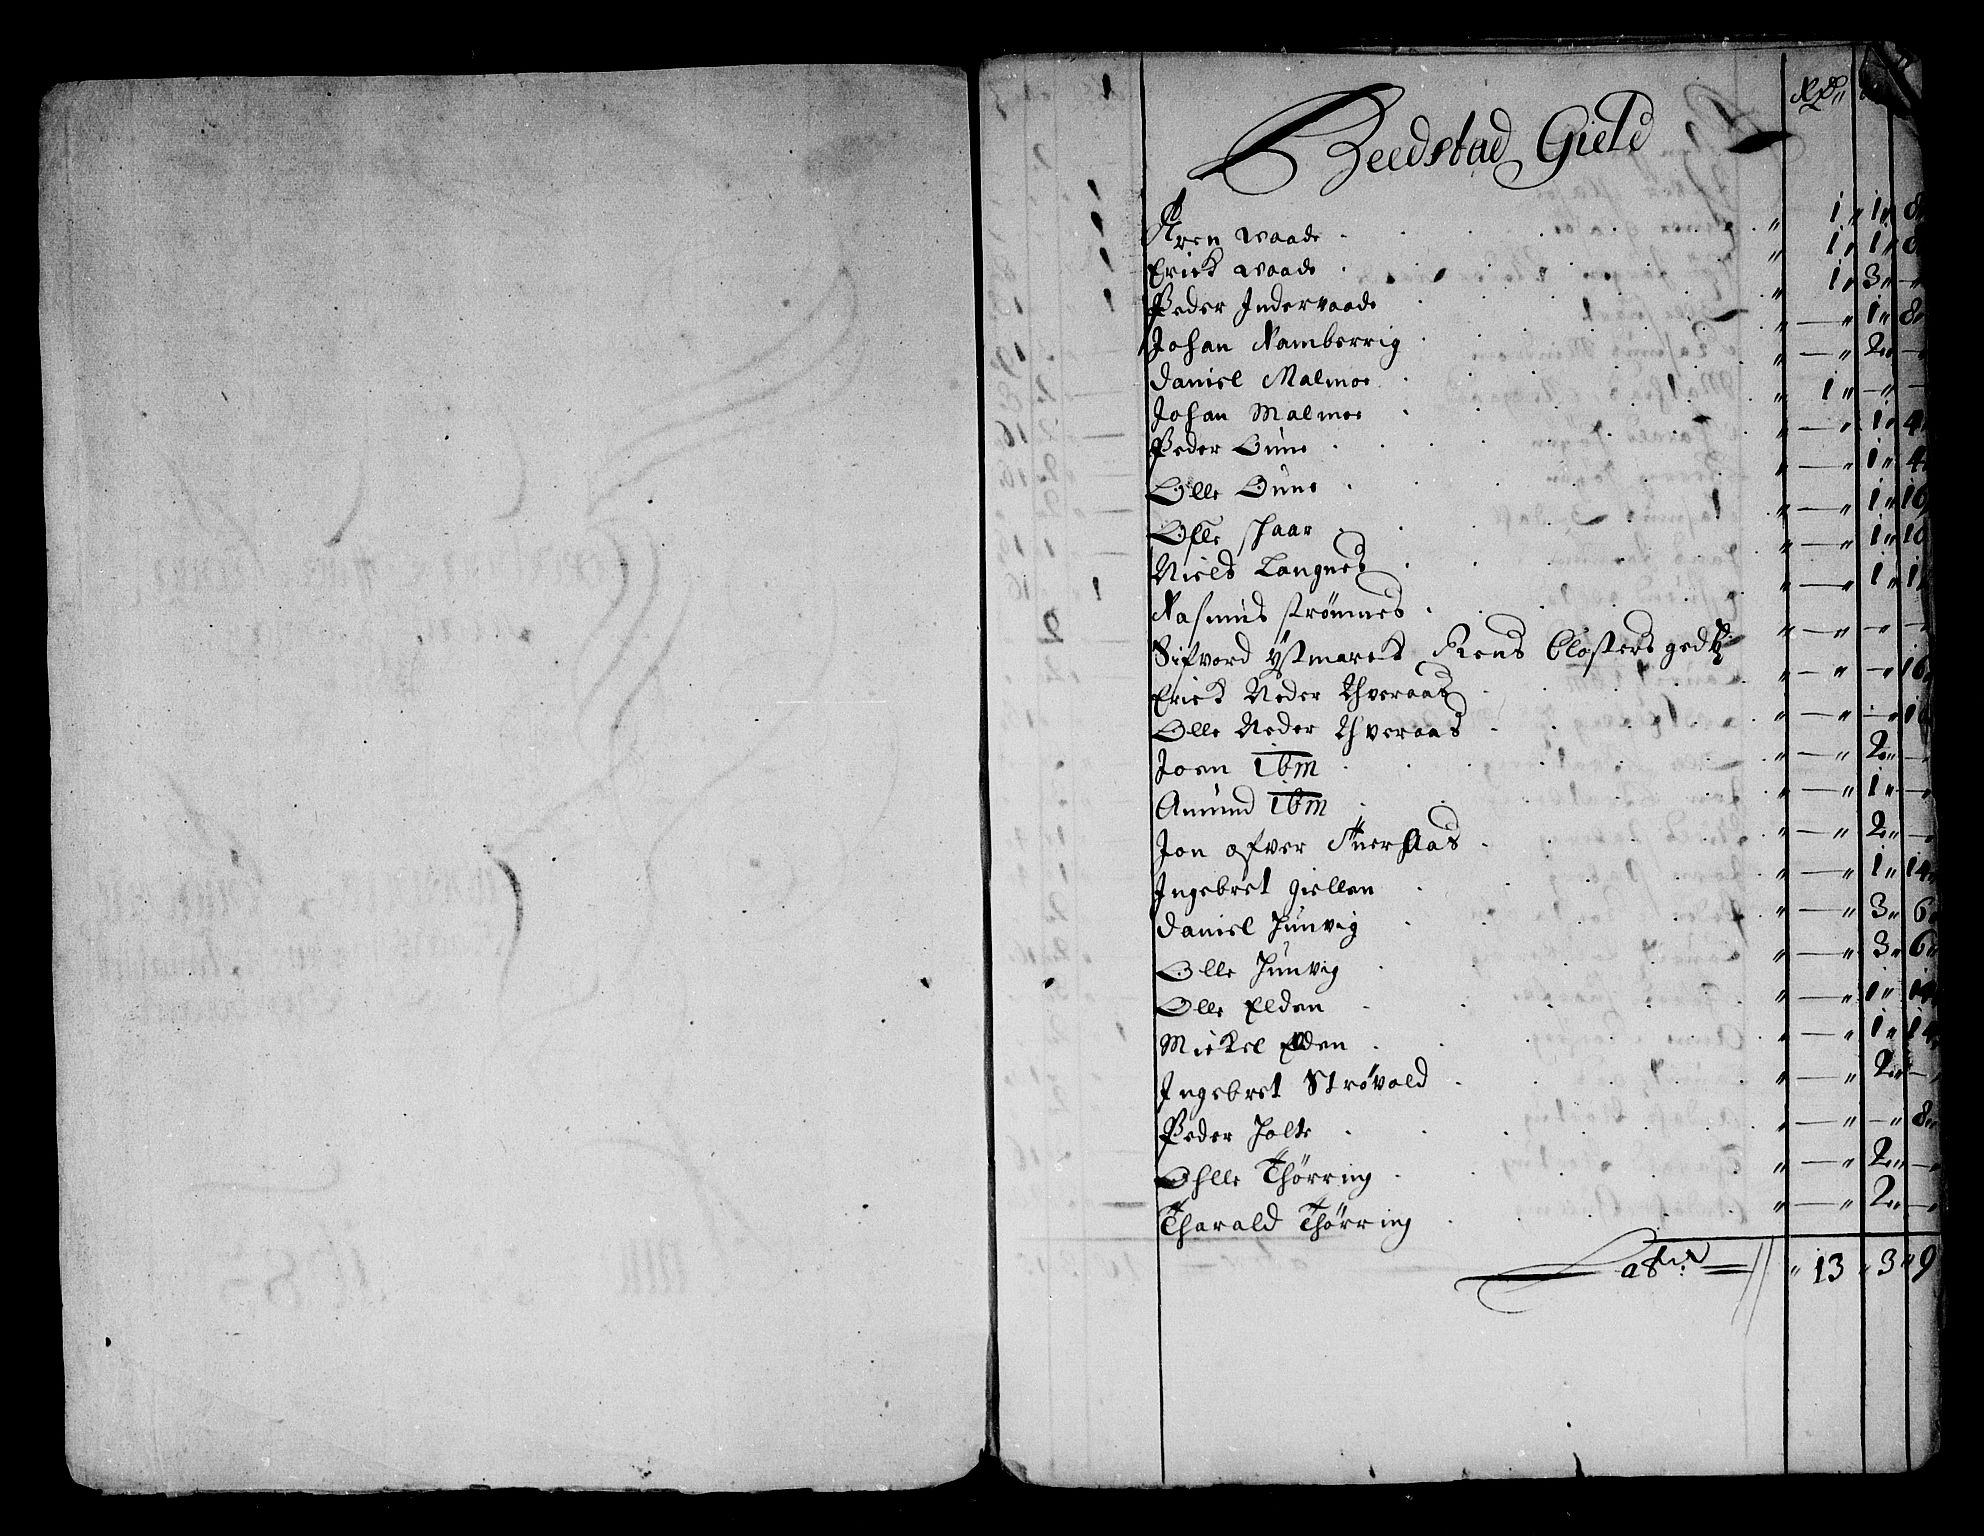 Beedstad Gield
Rd
Aren Waade " 1 " 1 " 8
Erick Waade " 1 " 1 "
Peder Inderwaade " 1 " 3 " —
Johan Namberrig " — " 1 " 8
Daniel Malmoe " — " 2 " —
Johan Malmoe " 1 " — " —
Peder Oune " — " 1 " 4
Olle Oune " — " 1 " 4
Olle Schaar " — " 1 " 16
Niels Langnes " — " 1 " 10
Rasmus Strømnes " — " 1 "
Sifvord Ystmarck Rens Closters gods " — " — " —
Erick Neder Thveraas " — " — " 16
Olle Neder Thveraas " — " — "
Joen ibm " — " 2 " —
Amund ibm " — " 1 " —
Jon ofver Tueraas " — " 2 " —
Ingebret Giellan " — " 1 " 14
Daniel Junvig " — " 3 " 6
Olle Junvig " — " 3 " 6
Olle Elden " — " 1 " 14
Mickel Elden " — " 1 " 14
Ingebret Strøvold " — " 2 " —
Peder Holte " — " — " 8
Ohlle Thørring " — " 2 " —
Tharald Thørring " — " 2 " —
Latus " 13 " 3 " 9